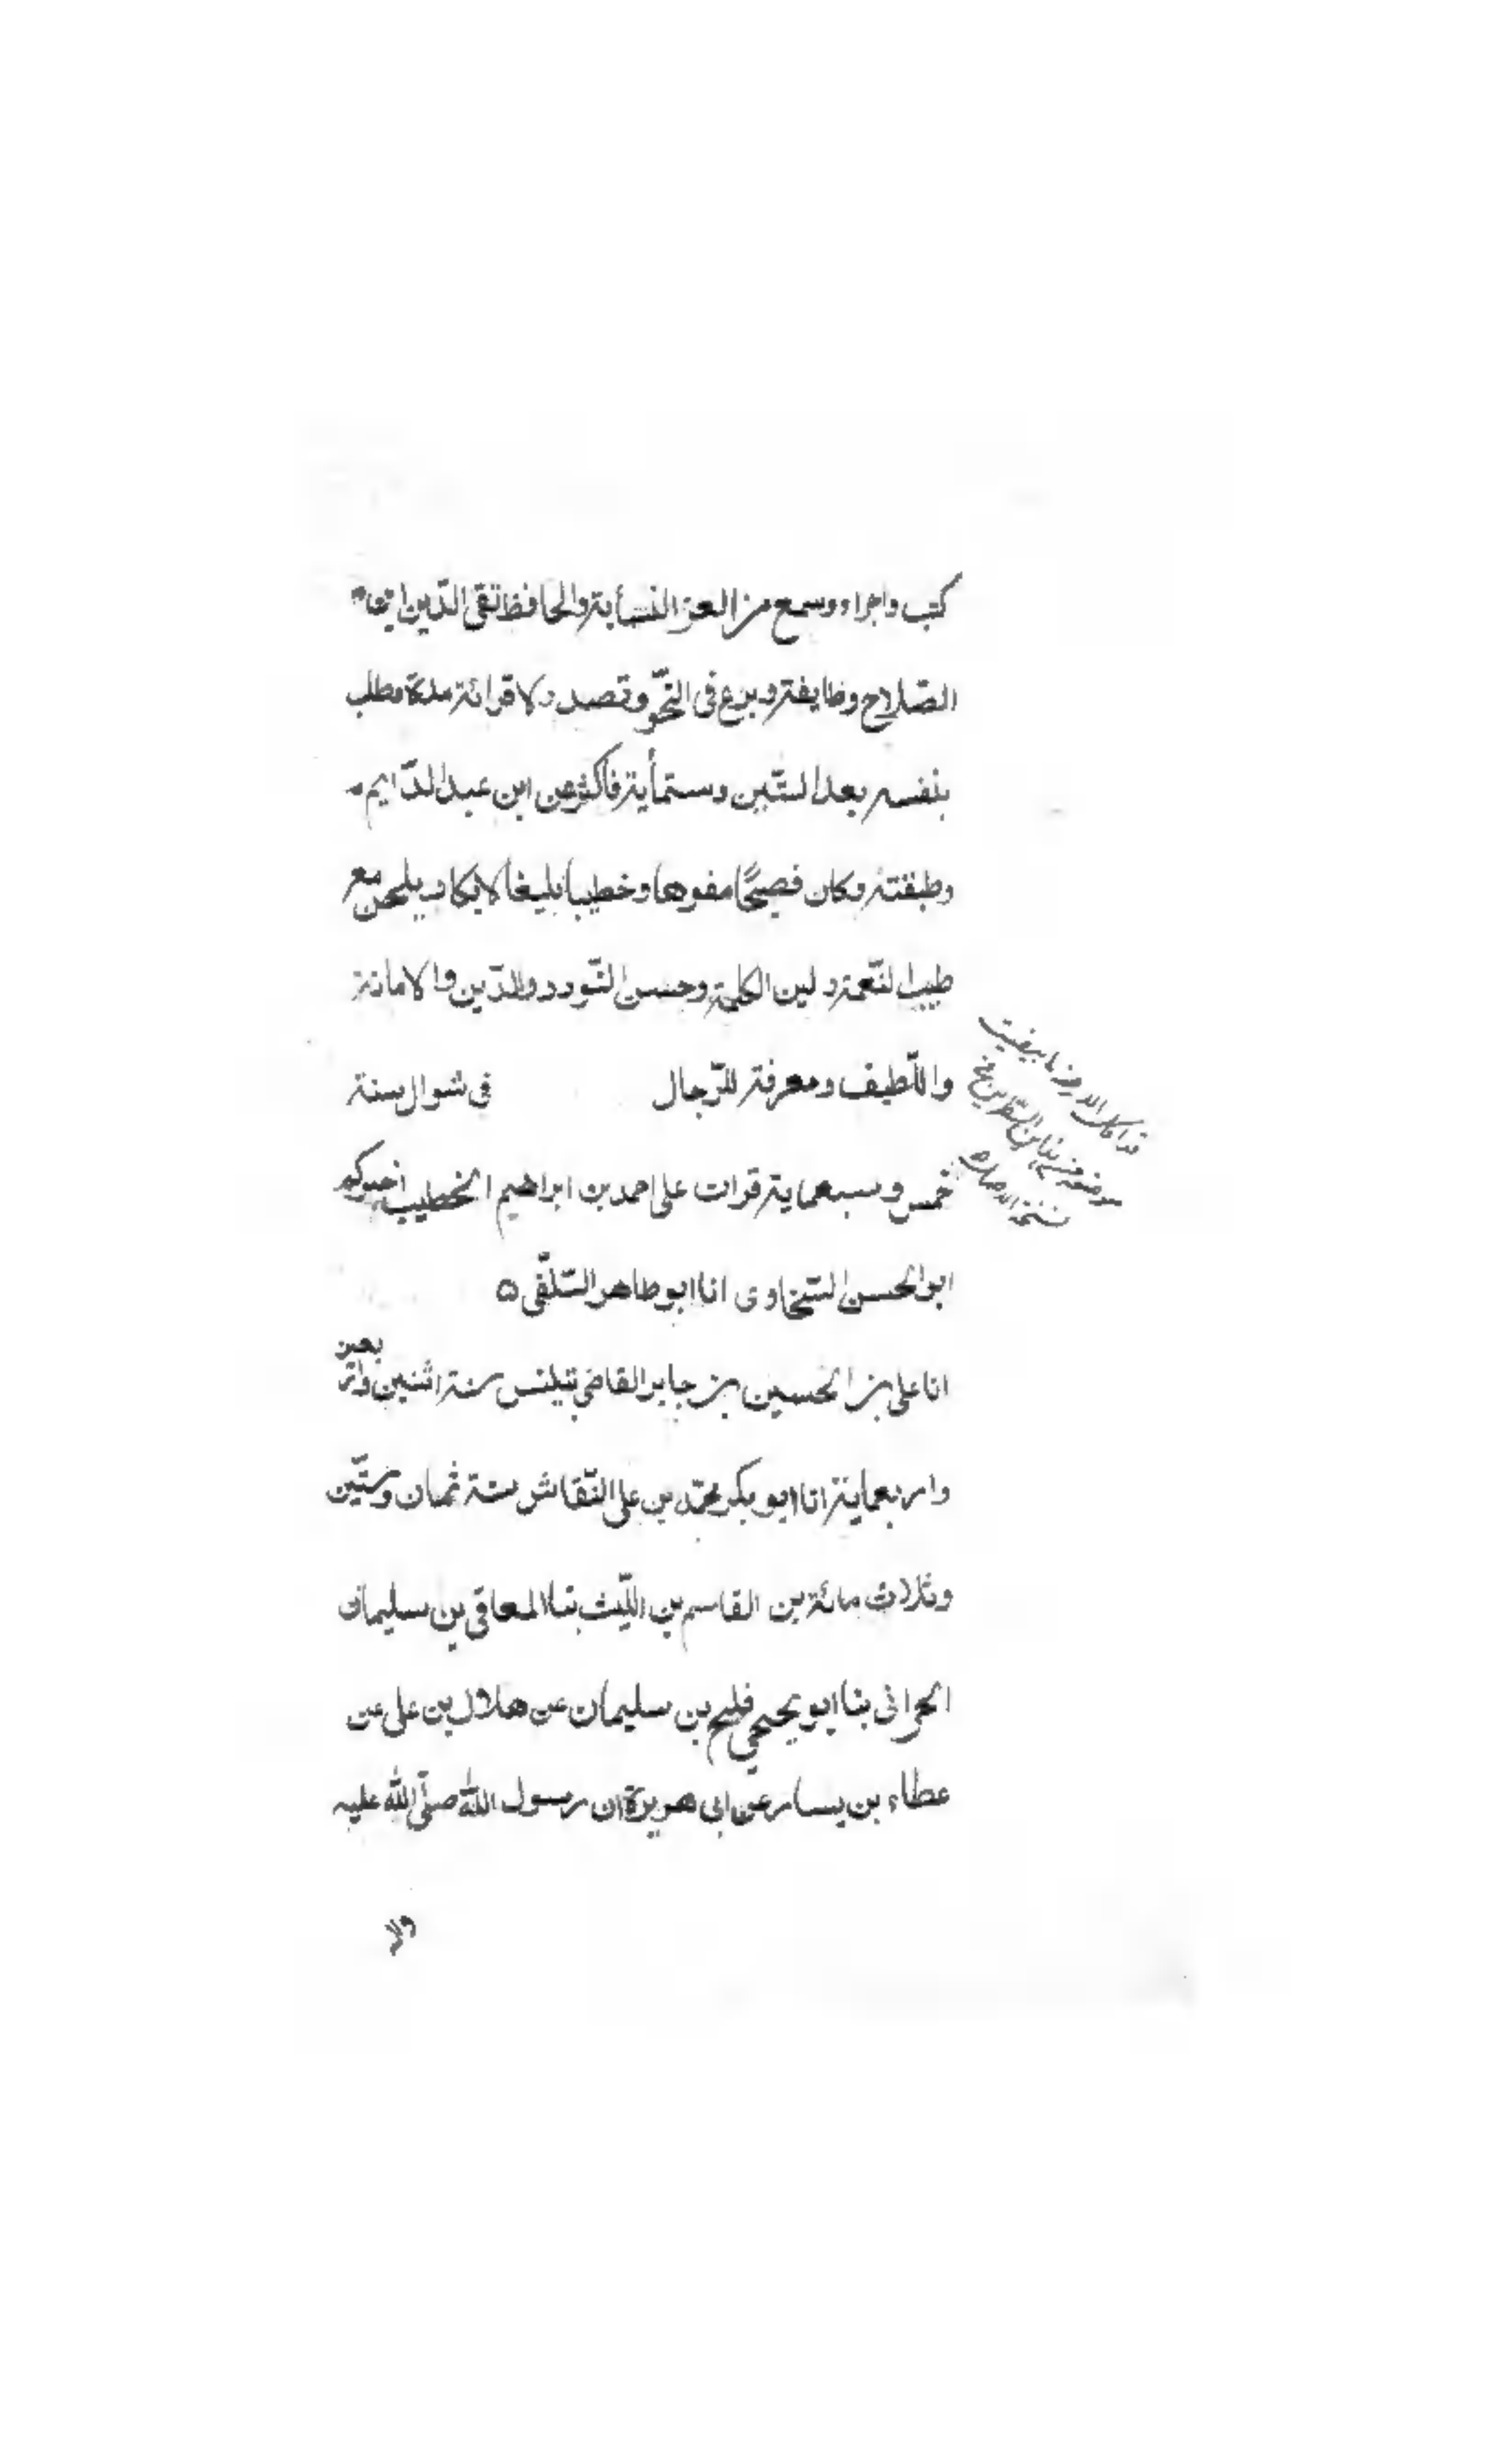 كتب واجزاء وسمع من العز النسابة والحافظ تقى الدين ابن
الصّلاح وطايفة وبرع فى النّحو وتصدر لاقرائة مدة وطلب
بنفسه بعد السّتين وستمأية فاكثر عن ابن عبد الدّايم
وطبقته وكان فصيحًا مفوها وخطيبا بليغا لا يكاد يلحن مع
طيب النّغمة ولين الكلمة وحسن التّودد والدّين والامانة
واللّطيف ومعرفة للرّجال فى شوال سنة
خمس وسبعماية قرات على احمد بن ابراهيم الخطيب اخبركم
ابو الحسن السّخاوى انا ابو طاهر السّلفى ٥
انا على بن الحسين بن جابر القاضى بتنيس سنة اثنين واربعين
واربعماية انا ابو بكر محمّد بن على النّقاش سنة ثمان وستّين
وثلاث مائة بن القاسم بن اللّيث بنا المعافى بن سليمان
الحرانى بنا ابو يحيى فليح بن سليمان عن هلال بن على عن
عطاء بن يسار عن ابى هريرة ان رسول اللّه صلّى اللّه عليه